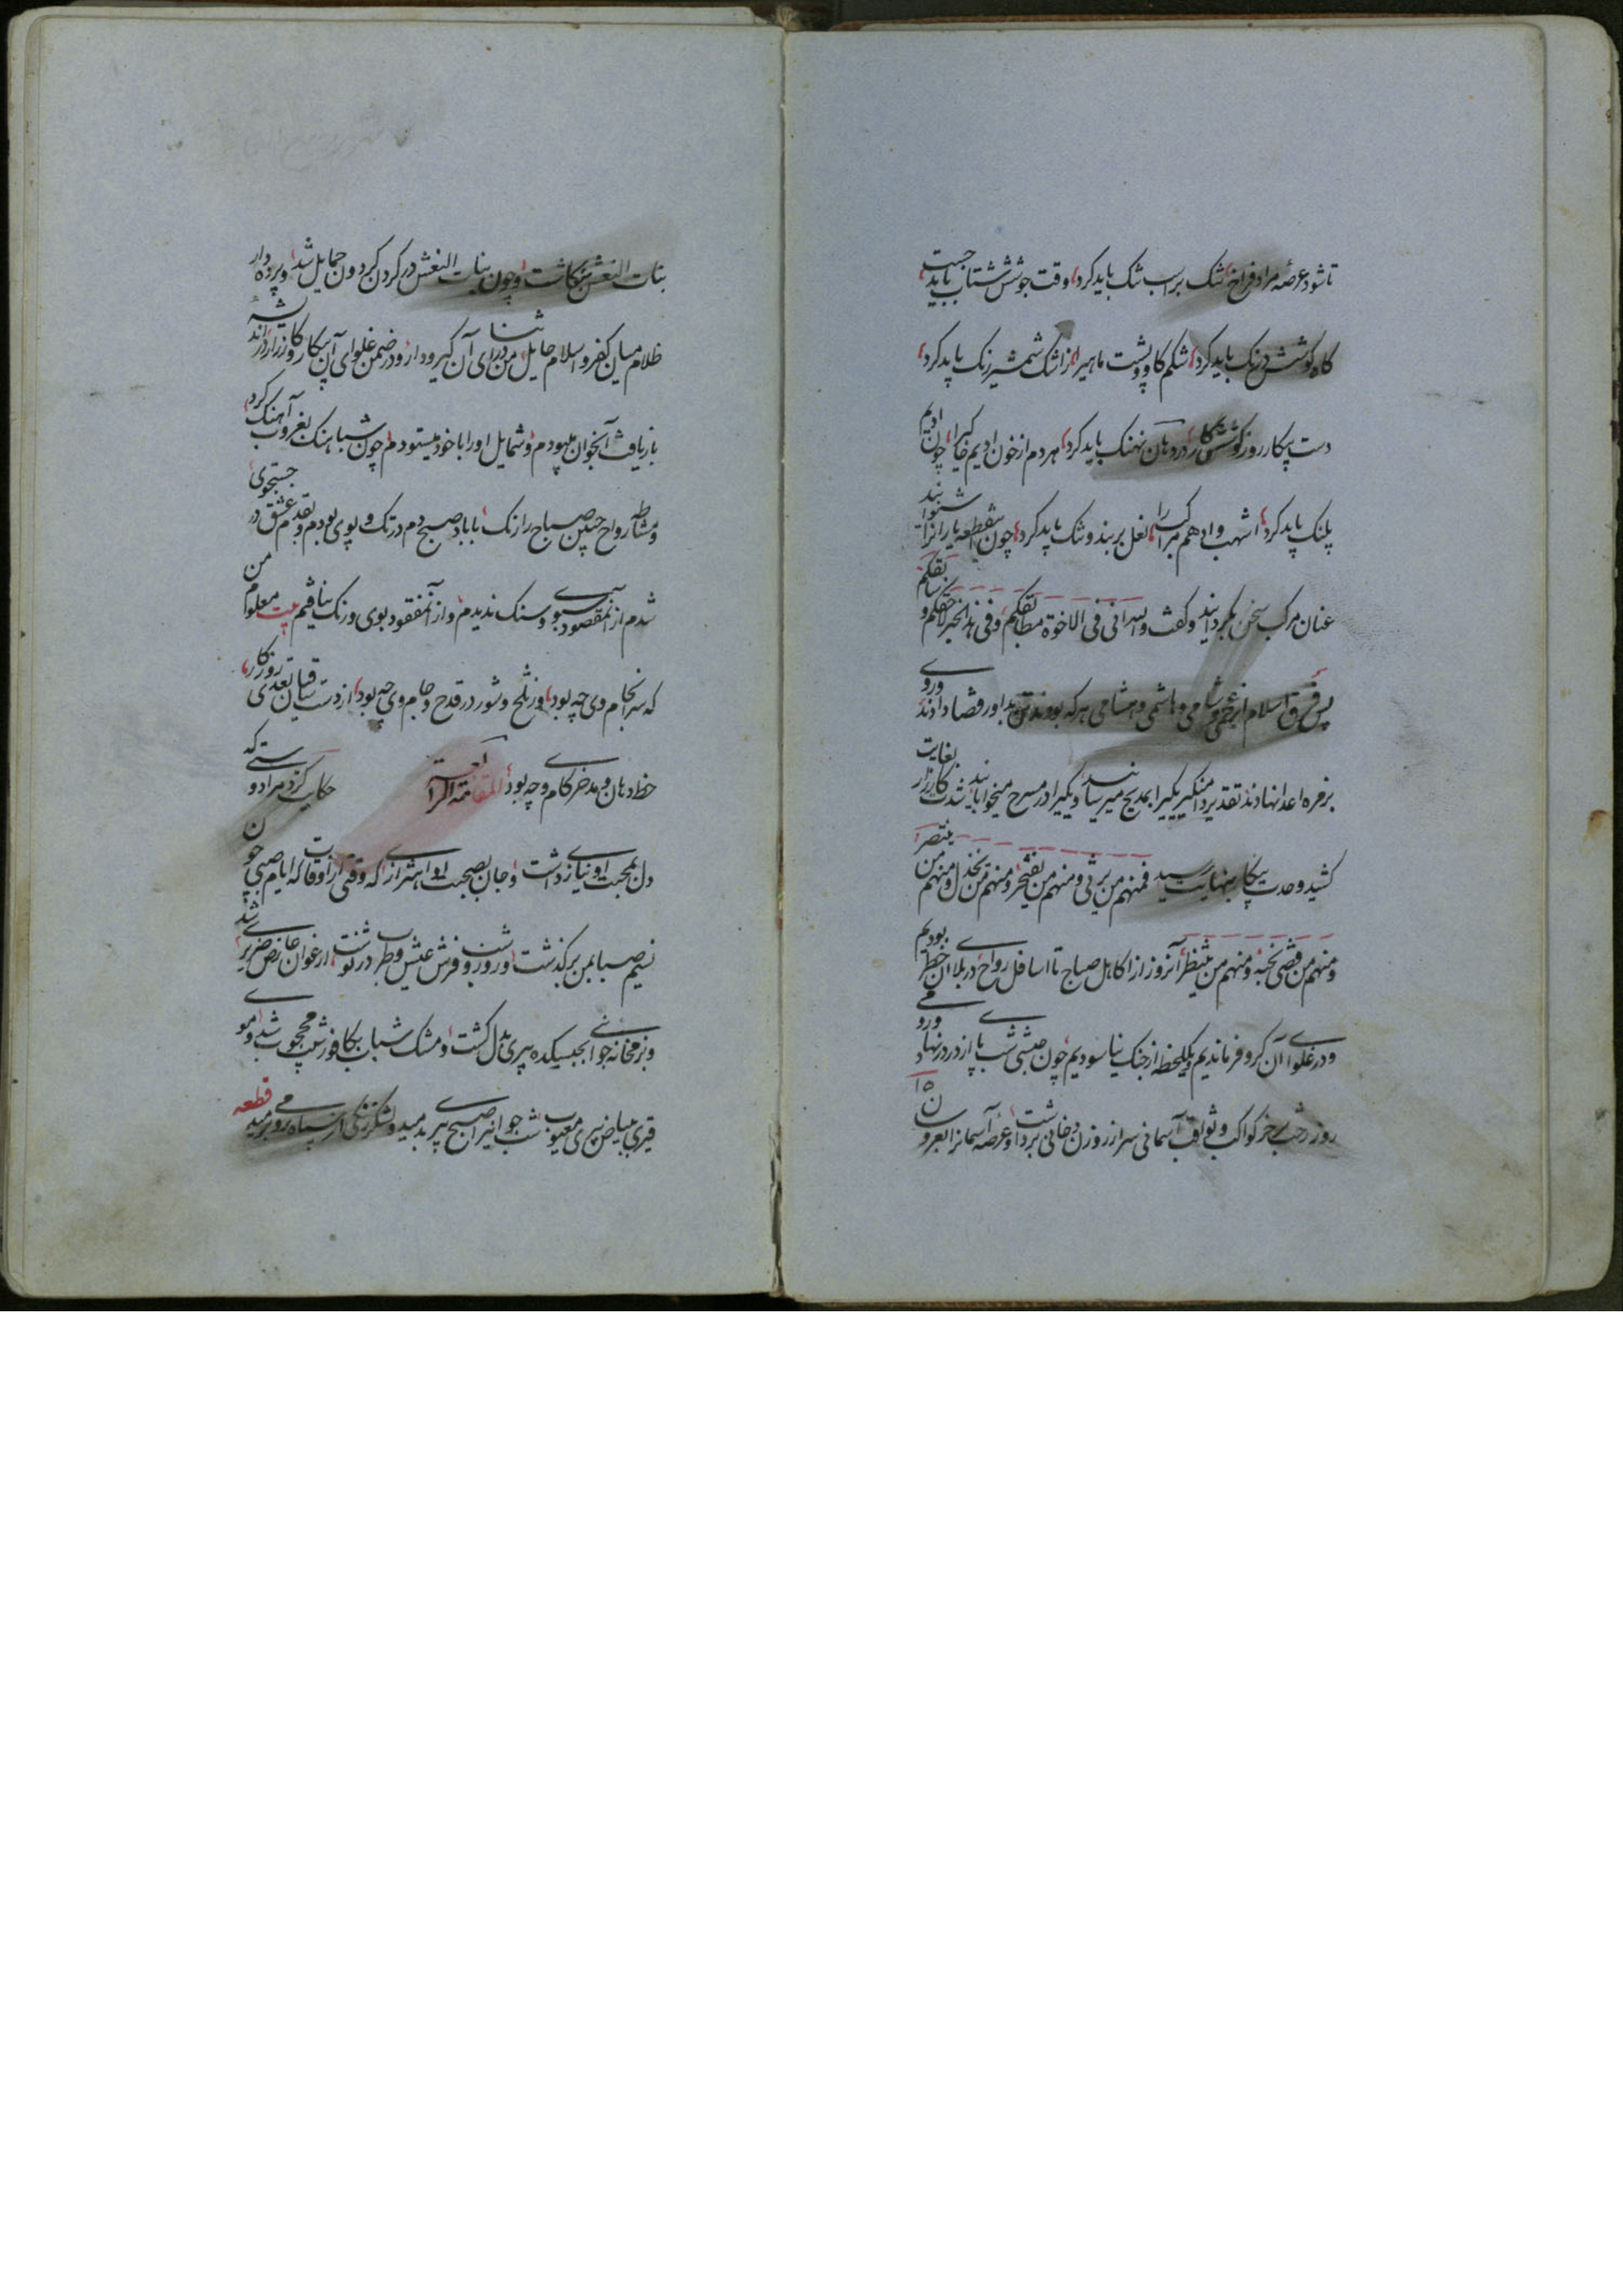 تا شود عرصه مراد فراخ تنک بر اسب تنک باید کرد وقت جوشش شتاب باید جست
کاه کوشش درنک باید کرد شکم کاو و پشت ماهیرا از اشک شمشیر رنک باید کرد
دست پیکار روز کوشش کار در دهان نهنک باید کرد هر دم از خون ادیم خاکیرا چون ادیم
پلنک باید کرد اشهب و ادهم مراکب را نعل بربند و تنک باید کرد چون قطعه یارانرا بشنوانید
عنان مرکب سخن بکردانید و کفت والله انی فی الاخوة مطابقکم و فی هذا الخیر لاحقکم و سابقکم
پس فرق اسلام از نجمی و شامی و هاشمی و هشامی هر که بودند تن بداور قضا دادند و روی
برفره اعدا نهادند تقدیر دامنکیر یکیرا بمذبح میرسانید و یکیرا در مسرح میخوابانید کارزار بغایت
کشید و حدت پیکار بنهایت رسید فمنهم من یرثی و منهم من یفتخر و منهم من یخذل و منهم من ینتصر
و منهم من قضی نحبه و منهم من ینتظر آنروز از اکاهل صباح تا اسافل رواح در بلای آن خطر بودیم
و در غلوای آن کر و فر ماندیم و یکلحظه از جنک نیاسودیم چون حبشی شب پای از در در نهاد و رومی
روز رخت بر خر کواکب و ثواقب آسمانی سر از روزن دخانی برداشت و عرصه آسمانرا بعروسان
بنات النعش بنکاشت و چون بنات النعش در کردن کردون حمایل شد و پرده دار
ظلام میان کفر و اسلام حایل من در اثنای آن کیرودار و در ضمن غلوای آن پیکار و کارزار در اندیشه
بازیافت آنجوان میبودم و شمایل اورا با خود میستودم چون شباهنک بغروب آهنک کرد
و مشاطه رواح جبین صباح را رنک با باد صبحدم در تک و پوی بودم و بقدم عشق در جستجوی
شدم از آنمقصود سبوی و سنک ندیدم و از آنمفقود بوی و رنک نیافتم بیت معلوم من
که سرانجام وی چه بود وز تلخ و شور در قدح و جام وی چه بود از دست ساقیان تعدی روزکار
حظ دهان و مدخر کام وی چه بود المقامة الرابعة حکایت کرد مرا دوستی که
دل بمحبت او نیازی داشت و جان بصحبت او اهتزازی که وقتی از اوقات که ایام صبی چون
نسیم صبا بمن برکذشت و روزو شب فرش عیش و طرب در نوشت ارغوان عارض ضریری شد
و بزمخانه جوانی بحبسکده پیری بدل کشت و مشک شباب بکافور شیب محجوب شد و موی
قیری ببیاض پیری معیوب شب جوانیرا صبح پیری بدمید و لشکر زنکی از سپاه رومی برمید قطعه